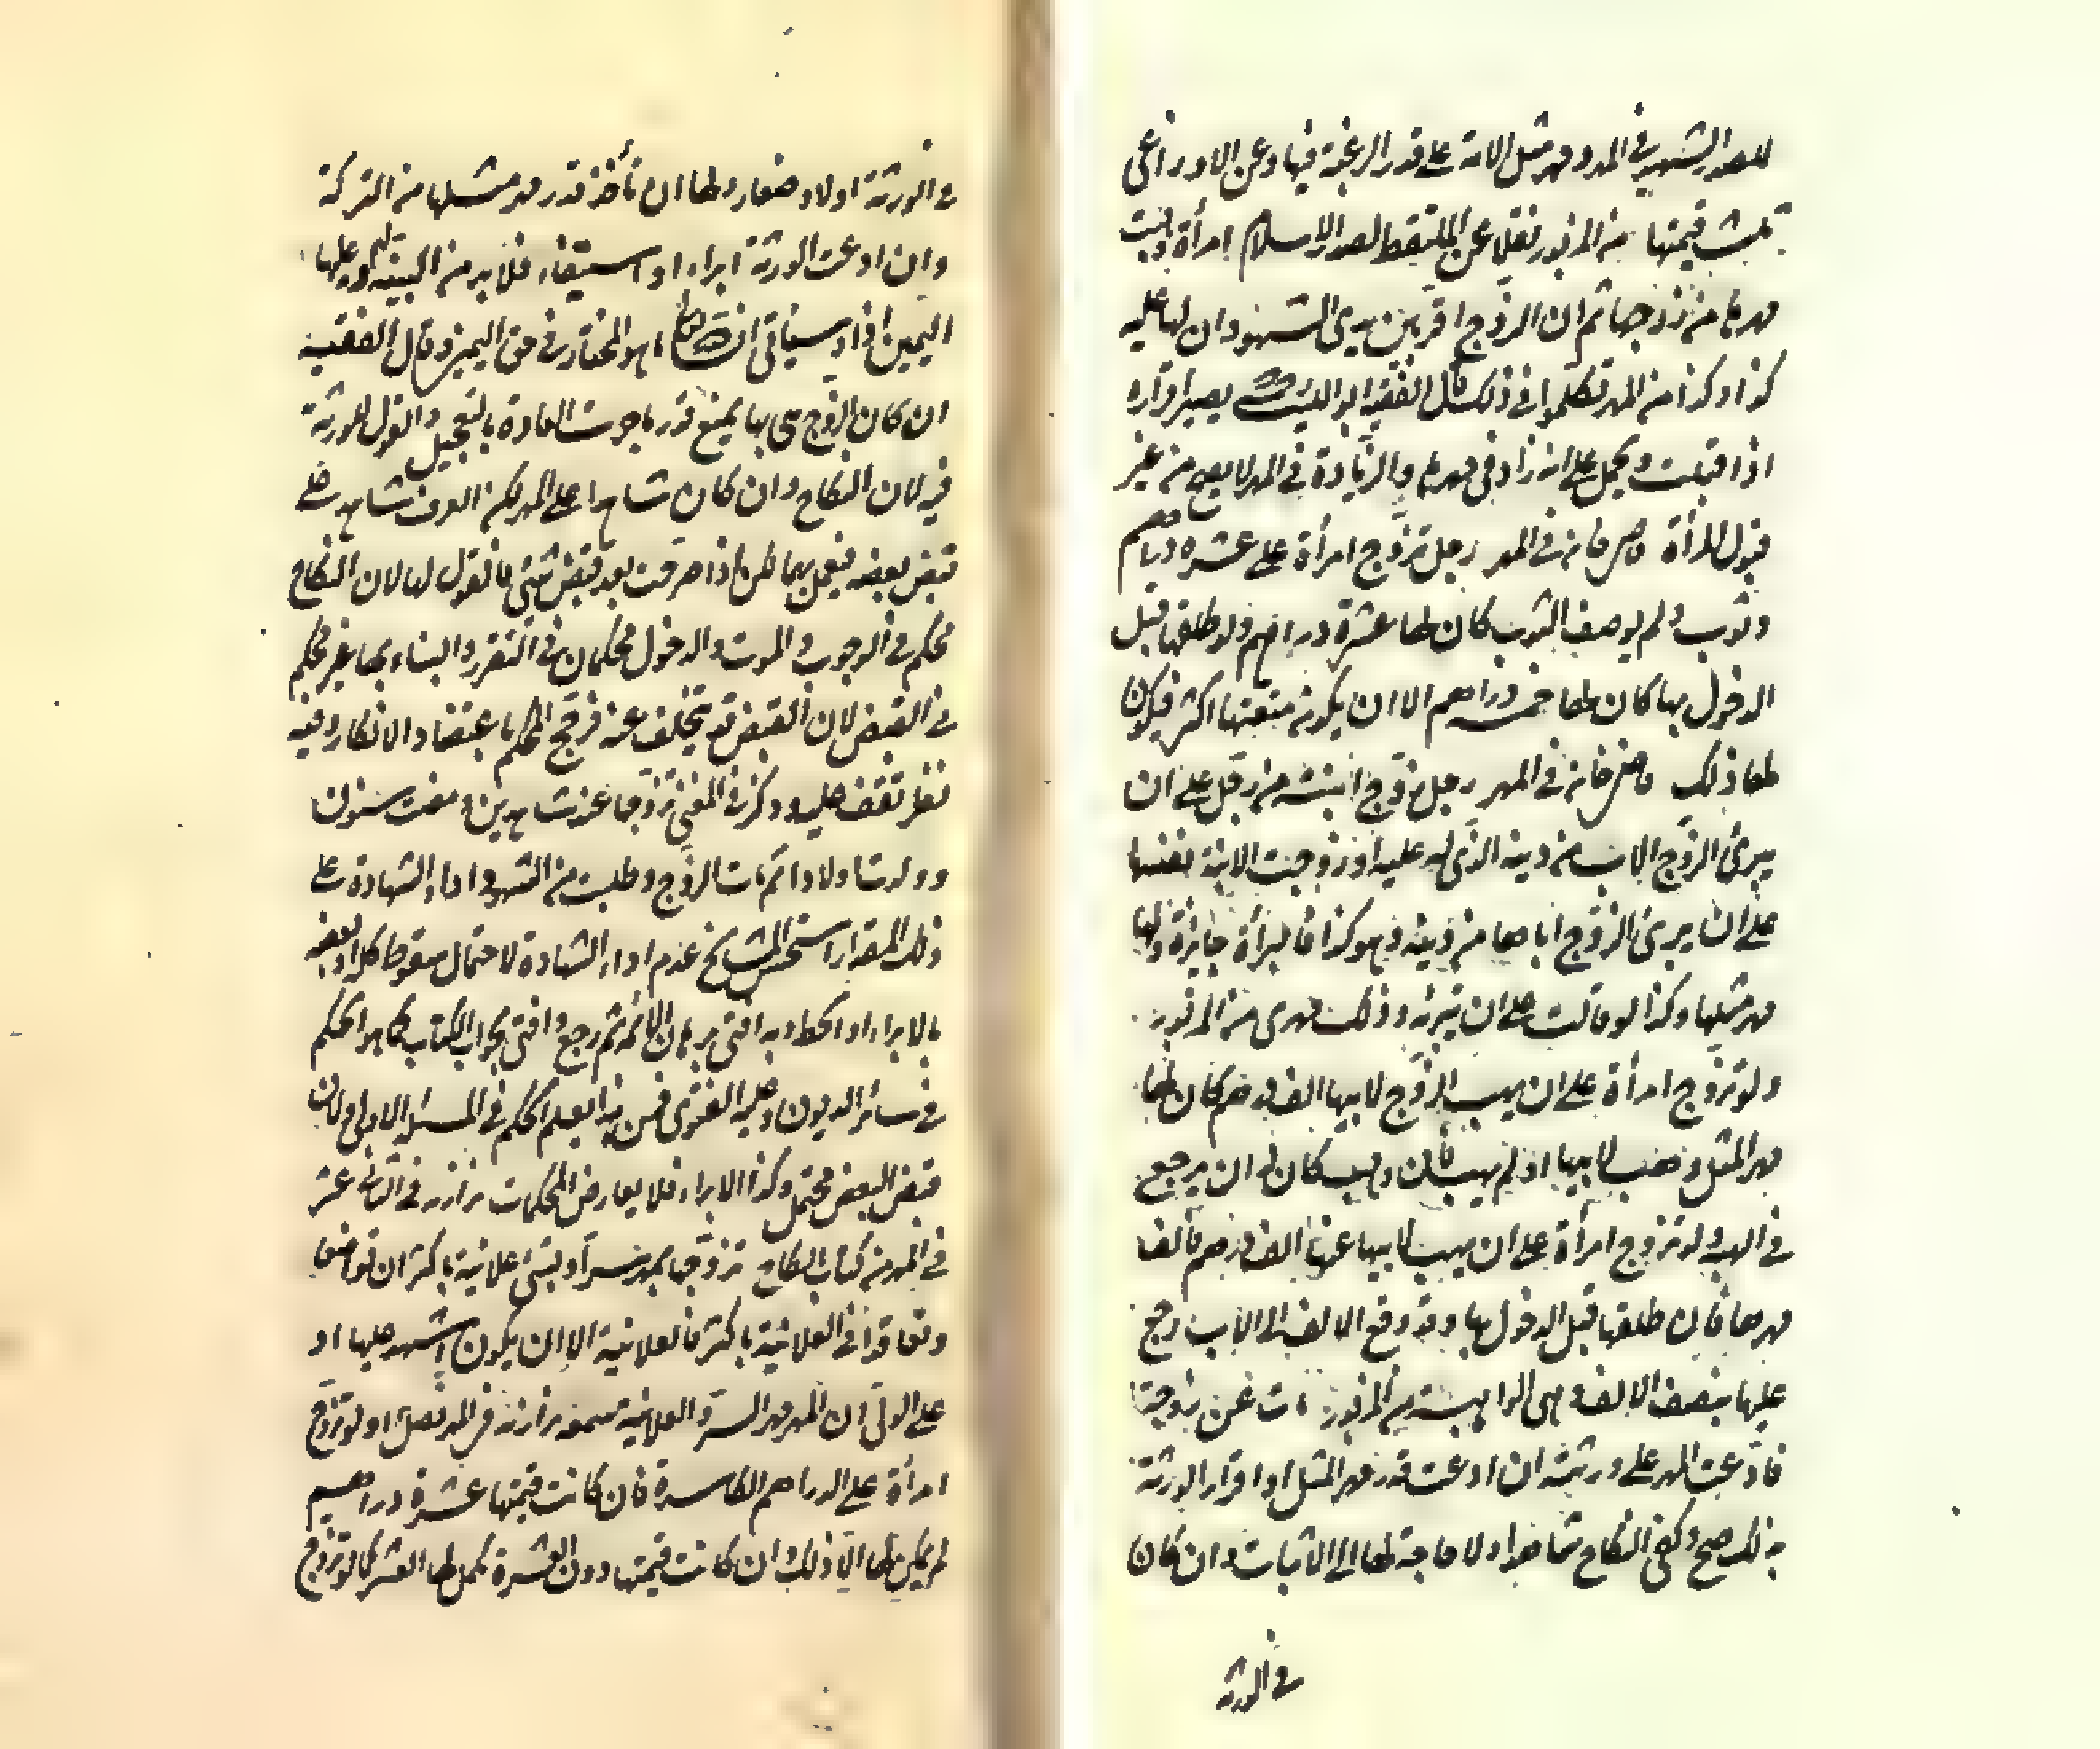 للصدر الشهيد في المهر ومهر مثل الامة على قدر الرغبة فيها وعن الاوزاعي
ثلث قيمتها من المزبور نقلا عن الملتقط لصدر الاسلام امرأة وهبت
مهرها من زوجها ثم ان الزوج اقر بين يدي الشهود ان لها عليه
كذا وكذا من المهر تكلموا في ذلك قال الفقيه ابو الليث يصير اقراره
اذا قبلت ويحمل على انه زاد في مهرها والزيادة في المهر لا يصح من غير
قبول المرأة قاضيخان في المهر رجل تزوج امرأة على عشرة دراهم
وثوب ولم يوصف الثوب كان لها عشرة دراهم ولو طلقها قبل
الدخول بها كان لها خمسة دراهم الا ان يكون متعتها اكثر فيكون
لها ذلك قاضيخان في المهر رجل تزوج ابنته من رجل على ان
يبرئ الزوج الاب من دينه الذي له عليه او زوجت الابنة نفسها
على ان يبرئ الزوج اباها من دينه وهو كذا فالبرأة جائزة ولها
مهر مثلها وكذا لو قالت على ان تبرئه وذلك مهري من المزبور
ولو تزوج امرأة على ان يهب الزوج لابيها الف درهم كان لها
مهر المثل وهب لابيها او لم يهب فان وهب كان له ان يرجع
في الهبة ولو تزوج امرأة على ان يهب لابيها عنها الف درهم فالف
مهرها فان طلقها قبل الدخول بها وقد دفع الالف الى الاب رجع
عليها بنصف الالف وهي الواهبة من المزبور مات عن زوجة
فادعت المهر على ورثته ان ادعت قدر مهر المثل او اقرار الورثة
به لك صح وكفى النكاح شاهدا ولا حاجة لها الى الاثبات وان كان
في الورثة
في الورثة اولاد صغار ولها ان تأخذ قدر مهر مثلها من التركة
وان ادعت الورثة ابراء او استيفاء فلا بد من البينة لهم وعليها
اليمين ان شاء الله تعالى ما هو المختار في حق اليمين وقال الفقيه
ان كان الزوج بنى بها يمنع قدر ما جرت العادة بالتعجيل والقول للورثة
فيه لان النكاح وان كان شاهدا على المهر لكن العرف شاهد على
قبض بعضه فيعمل بهما لكن اذا صرفت بعد قبض شئ فالقول لها لان النكاح
محكم في الوجوب والموت والدخول محكمان في التقرر والبناء بها غير محكم
في القبض لان القبض قد يتخلف عنه فرجح المحكم باعتضاد الانكار وفيه
نظر تقف عليه وذكر في المغني تزوجها عند شاهدين ومضت سنون
وولدت اولادا ثم مات الزوج وطلبت من الشهود اداء الشهادة على
ذلك المقدار استحسن المشايخ عدم اداء الشهادة لاحتمال سقوط كله او بعضه
بالابراء او الحط وبه افتى برهان الائمة ثم رجع وافتى بجواب الكتاب كما هو الحكم
في سائر الديون وعليه الفتوى فمن هذا يعلم الحكم في المسئلة الاولى لان
قبض البعض محتمل وكذا الابراء فلا يعارض المحكمات بزازية في الثاني عشر
في المهر من كتاب النكاح تزوجها بمهر سرا وبشئ علانية باكثر ان تواضعا
وتعاقدا في العلانية باكثر فالعلانية الا ان يكون اشهد عليها او
على الولي ان المهر مهر السر والعلانية سمعة بزازية في المهر فصل اول ولو تزوج
امرأة على الدراهم الكاسدة فان كانت قيمتها عشرة دراهم
لم يكن لها الا ذلك وان كانت قيمتها دون العشرة تكمل لها العشر كما لو تزوج